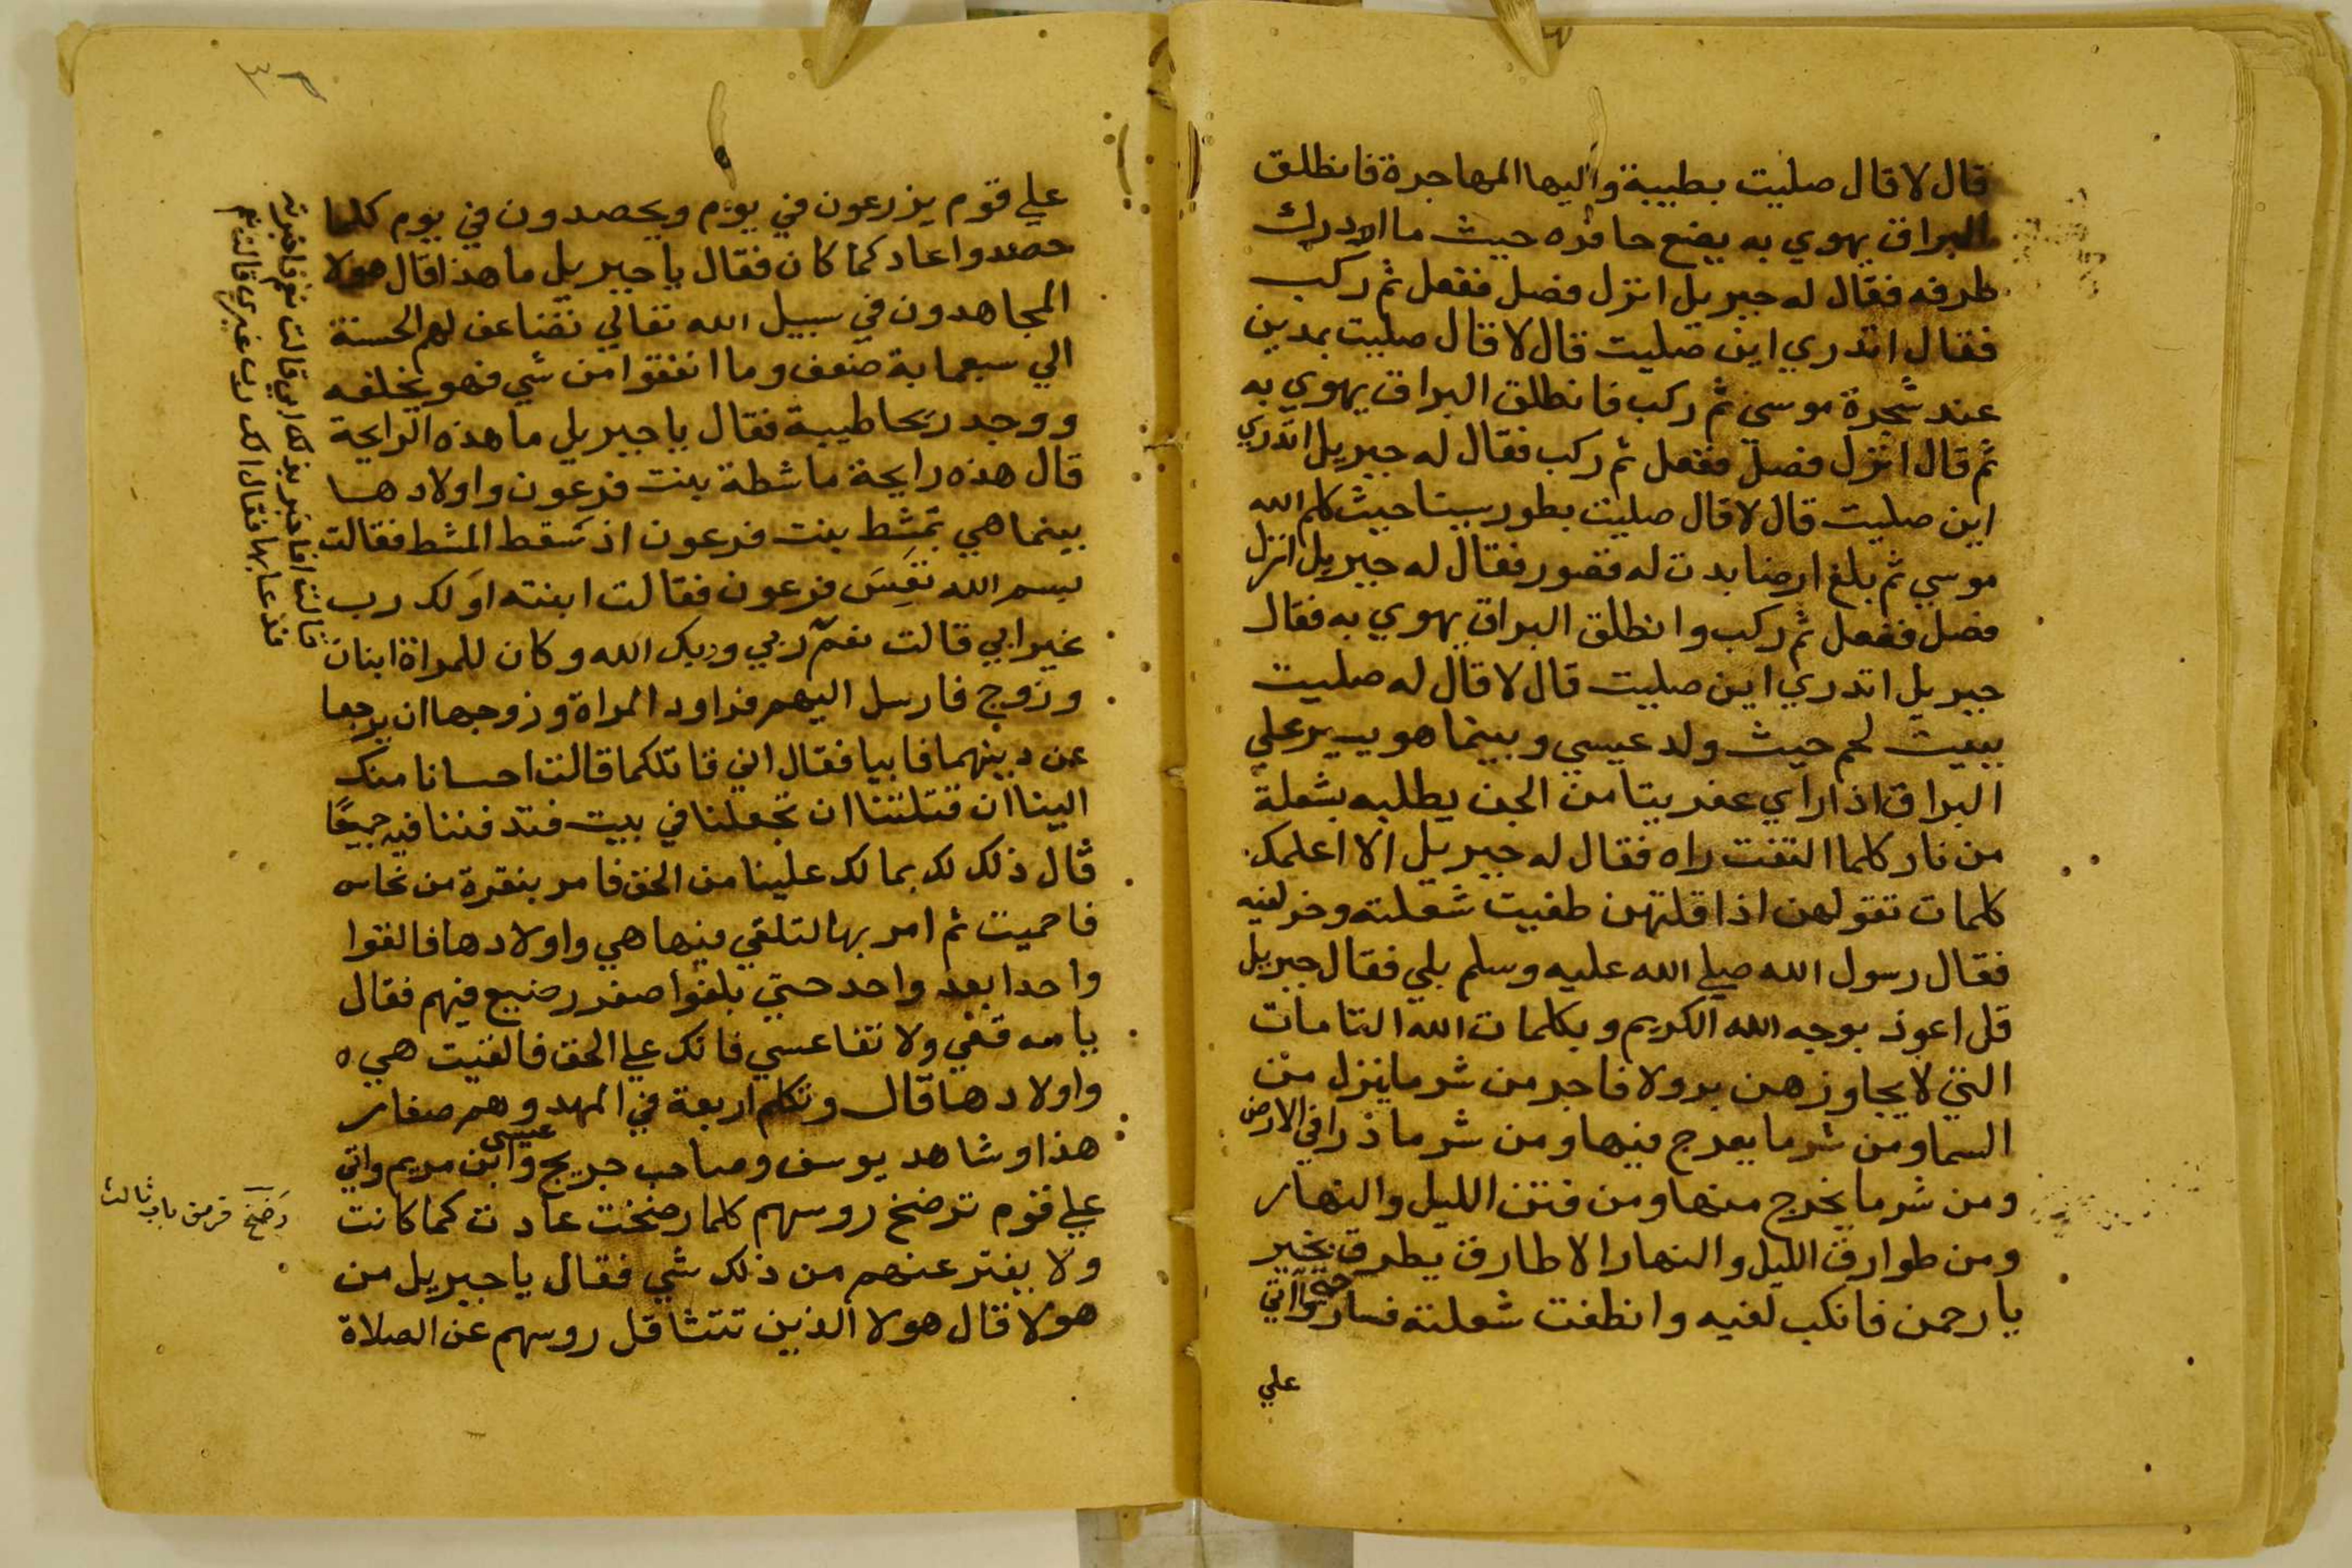 قال لا قال صليت بطيبة واليها المهاجرة فانطلق
البراق يهوي به يضع حافره حيث ما ادرك
طرفه فقال له جبريل انزل فصل ففعل ثم ركب
فقال اتدري اين صليت قال لا قال صليت بمدين
عند شجرة موسى ثم ركب فانطلق البراق يهوي به
ثم قال انزل فصل ففعل ثم ركب فقال له جبريل اتدري
اين صليت قال لا قال صليت بطور سينا حيث كلم الله
موسي ثم بلغ ارضا بدت له قصور فقال له جبريل انزل
فصل ففعل ثم ركب وانطلق البراق يهوي به فقال
جبريل اتدري اين صليت قال لا قال له صليت
ببيت لحم حيث ولد عيسي وبينما هو يسير علي
البراق اذ اراي عفريتا من الجن يطلبه بشعلة
من نار كلما التفت راه فقال له جبريل الا اعلمك
كلمات تقولهن اذا قلتهن طفيت شعلته وخر لفيه
فقال رسول الله صلي الله عليه وسلم بلي فقال جبريل
قل اعوذ بوجه الله الكريم وبكلمات الله التامات
التي لا يجاوزهن بر ولا فاجر من شر ما ينزل من
السما ومن شر ما يعرج فيها ومن شر ما ذرا في الارض
ومن شر ما يخرج منها ومن فتن الليل والنهار
ومن طوارق الليل والنهار الا طارق يطرق بخير
يا رحمن فانكب لفيه وانطفت شعلته فساروا حتى اتي
علي
٣٦
علي قوم يزرعون في يوم ويحصدون في يوم كلما
حصدوا عاد كما كان فقال يا جبريل ما هذا قال هولا
المجاهدون في سبيل الله تعالي تضاعف لهم الحسنة
الي سبعماية ضعف وما انفقوا من شي فهو يخلفه
ووجد ريحا طيبة فقال يا جبريل ما هذه الرايحة
قال هذه رايحة ماشطة بنت فرعون واولادها
بينما هي تمشط بنت فرعون اذ سقط المشط فقالت
بسم الله تعس فرعون فقالت ابنته اولك رب
غير ابي قالت نعم ربي وربك الله وكان للمراة ابنان
وزوج فارسل اليهم فراود المراة وزوجها ان يرجعا
عن دينهما فابيا فقال اني قاتلكما قالت احسانا منك
الينا ان قتلتنا ان تجعلنا في بيت فتدفننا فيه جميعا
قال ذلك لك بما لك علينا من الحق فامر بنقرة من نحاس
فاحميت ثم امر بها لتلقي فيها هي واولادها فالقوا
واحدا بعد واحد حتي بلغوا صغر رضيع فيهم فقال
يا مه قعي ولا تقاعسي فانك علي الحق فالقيت هي
واولادها قال وتكلم اربعة في المهد وهم صغار
هذا وشاهد يوسف وصاحب جريج وعيسى ابن مريم واتي
علي قوم ترضخ روسهم كلما رضخت عادت كما كانت
ولا يفتر عنهم من ذلك شي فقال يا جبريل من
هولا قال هولا الذين تتثاقل روسهم عن الصلاة
قالت افاخبر بذلك ابي قالت نعم فاخبرته
فدعا بها فقال الك رب غيري قالت نعم
رضخ